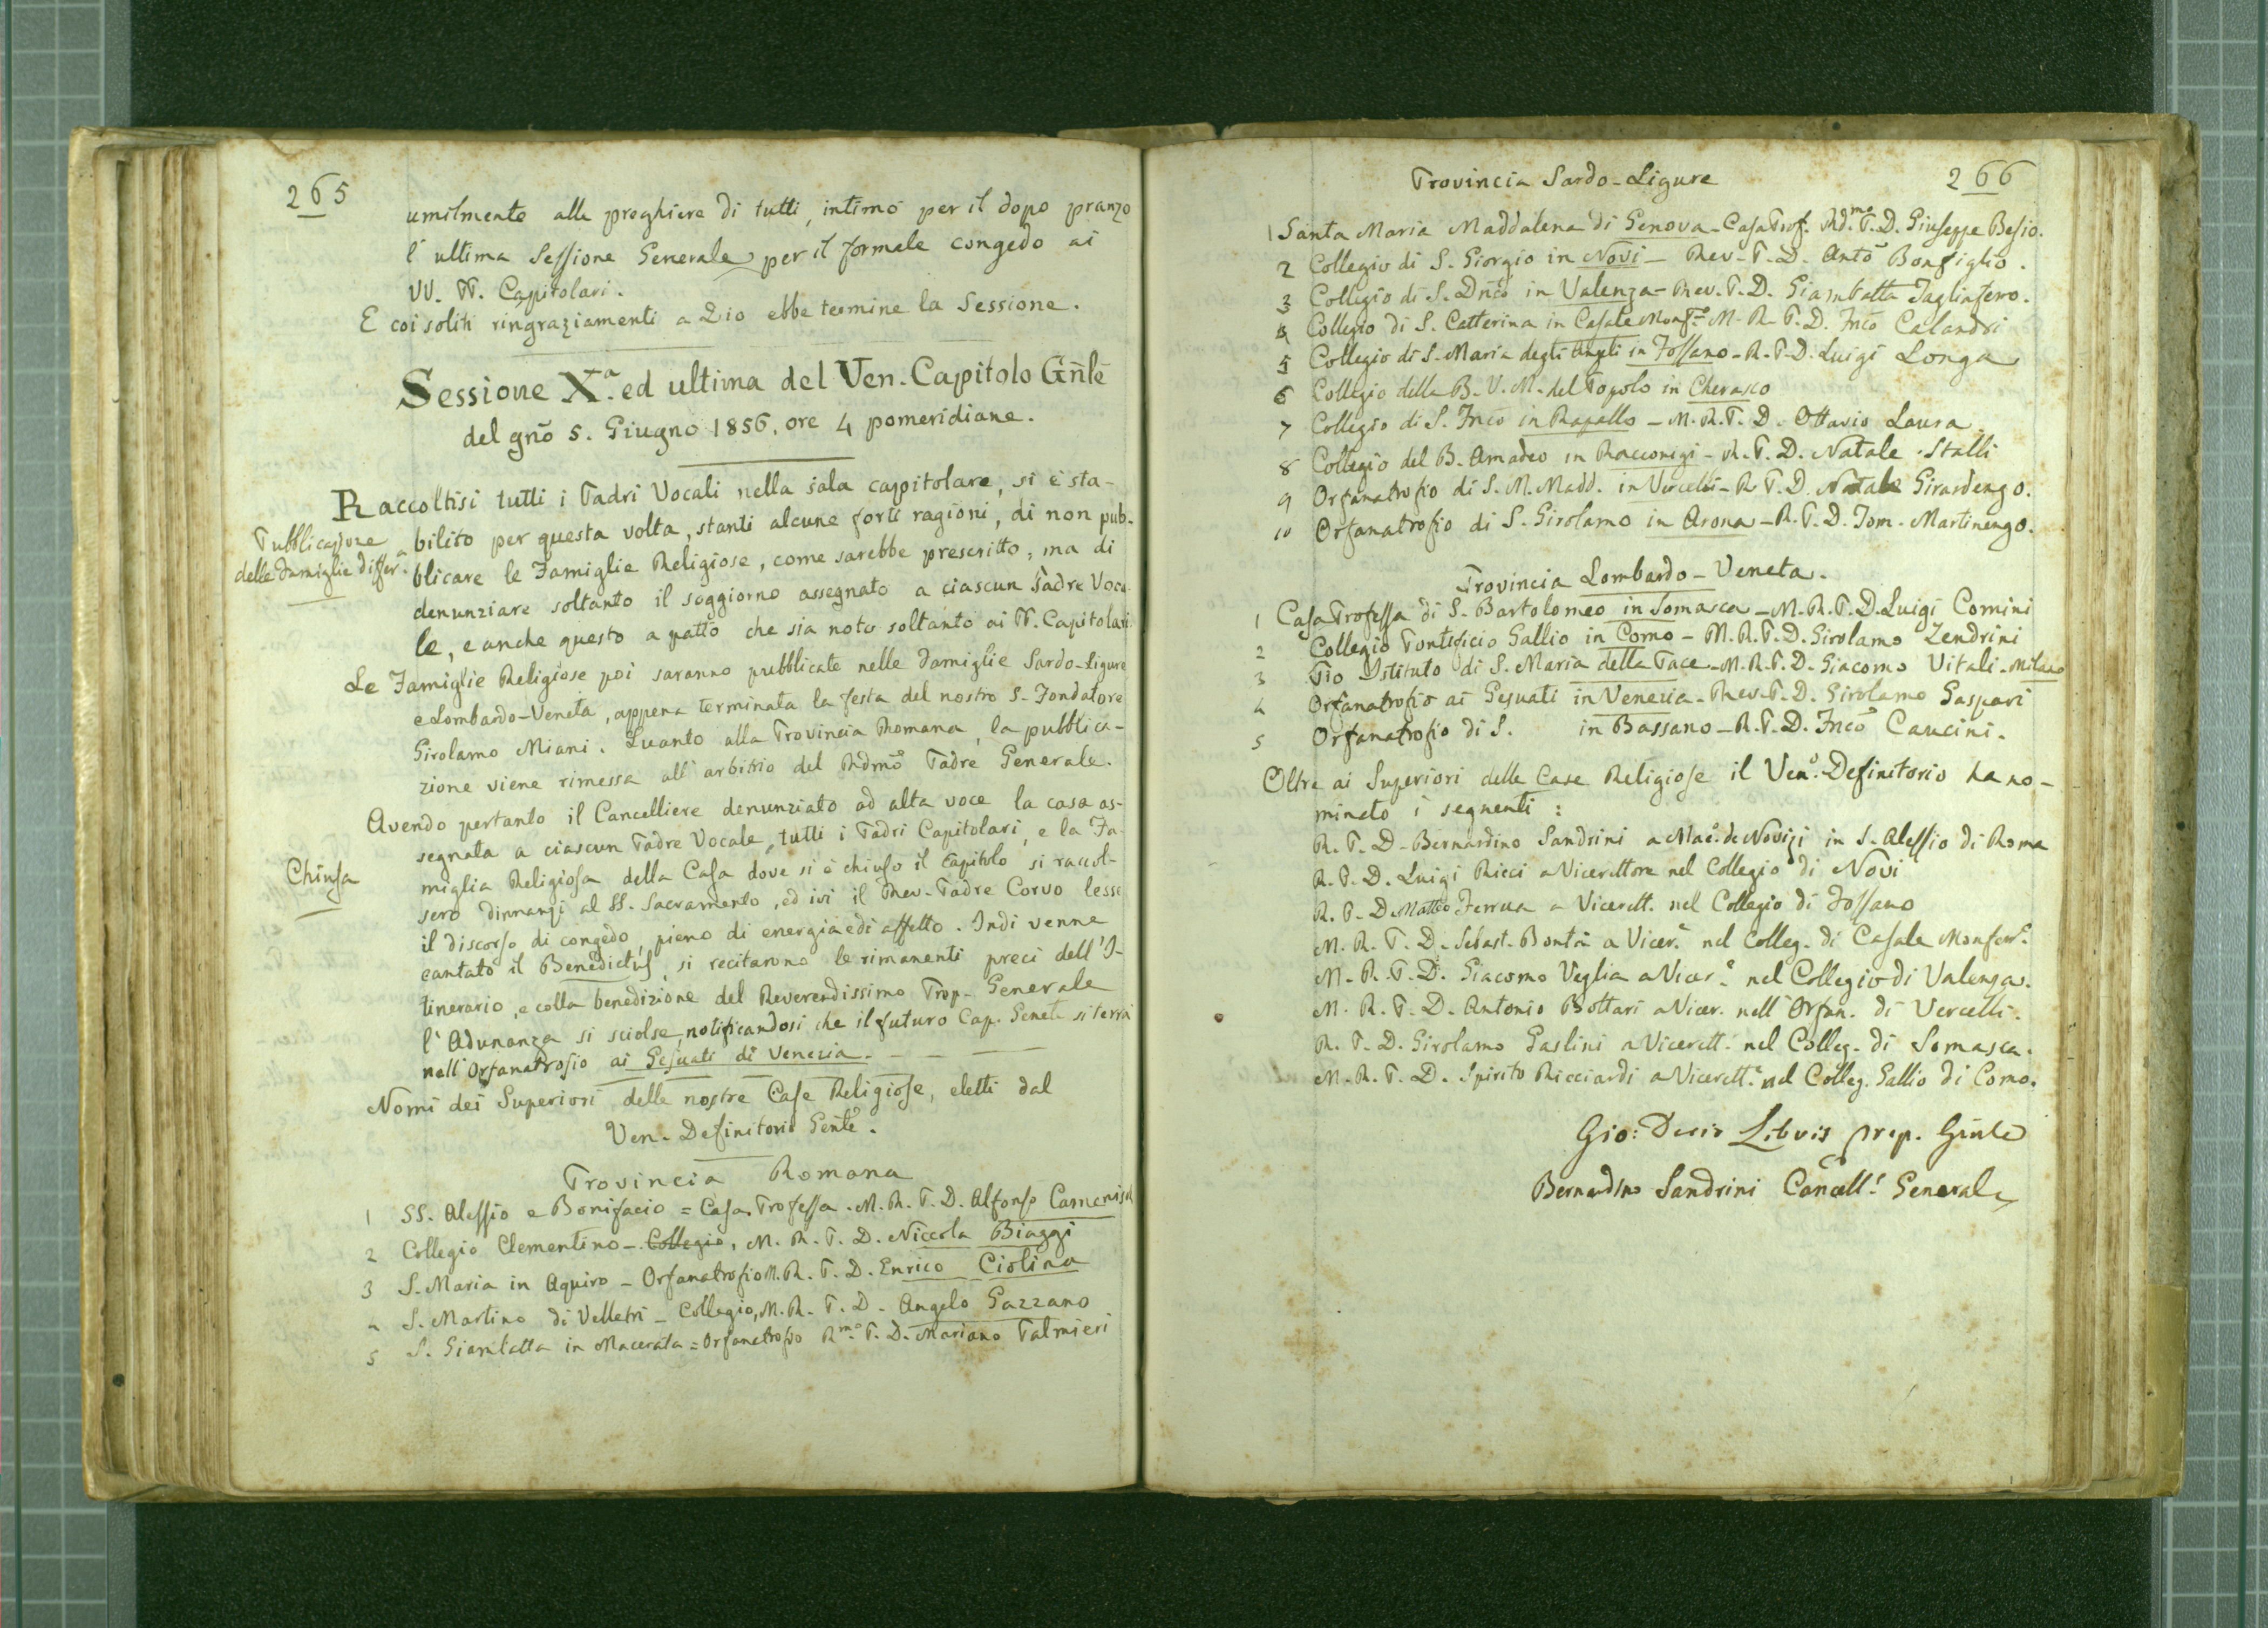 265
umilmente alle preghiere di tutti, intimò per il dopo pranzo
l'ultima Sessione Generale per il formale congedo ai
VV. PP. Capitolari.
E coi soliti ringraziamenti a Dio ebbe termine la Sessione.
Sessione X.a ed ultima del Ven. Capitolo Gn̄lē
del gnō 5. Giugno 1856, ore 4 pomeridiane.
Raccoltisi tutti i Padri Vocali nella sala capitolare, si è sta-
Pubblicazione
delle Famiglie differ.a
bilito per questa volta, stanti alcune forti ragioni, di non pub-
blicare le Famiglie Religiose, come sarebbe prescritto, ma di
denunziare soltanto il soggiorno assegnato a ciascun Padre Voca
le, e anche questo a patto che sia noto soltanto ai PP. Capitolari.
Le Famiglie Religiose poi saranno pubblicate nelle Famiglie Sardo-Ligure
e Lombardo-Veneta, appena terminata la festa del nostro S. Fondatore
Girolamo Miani. Quanto alla Provincia Romana, la pubblica-
zione viene rimessa all'arbitrio del Rdmo Padre Generale.
Avendo pertanto il Cancelliere denunziato ad alta voce la casa as-
segnata a ciascun Padre Vocale, tutti i Padri Capitolari, e la Fa-
Chiusa
miglia Religiosa della Casa dove si è chiuso il Capitolo si raccol-
sero dinnanzi al SS. Sacramento, ed ivi il Rev. Padre Corvo lesse
il discorso di congedo, pieno di energia e di affetto. Indi venne
cantato il Benedictus, si recitarono le rimanenti preci dell'I-
tinerario, e colla benedizione del Reverendissimo Prep. Generale
l'Adunanza si sciolse, notificandosi che il futuro Cap. Genele si terrà
nell'Orfanatrofio ai Gesuati di Venezia.
Nomi dei Superiori delle nostre Case Religiose, eletti dal
Ven. Definitorio Genle.
Provincia Romana
1 SS. Alessio e Bonifacio = Casa Professa. M. R. P. D. Alfonso
2 Collegio Clementino - Collegio, M. R. P. D. Niccola Biaggi
3 S. Maria in Aquiro - Orfanatrofio M. R. P. D. Enrico Ciolina
4 S. Martino di Velletri - Collegio, M. R. P. D. Angelo Gazzano
5 S. Giambatta in Macerata = Orfanatrofio R.mo P. D. Mariano Palmieri
266
Provincia Sardo-Ligure
1 Santa Maria Maddalena di Genova - Casa Prof. Rd.mo P. D. Giuseppe Besio.
2 Collegio di S. Giorgio in Novi - Rev. P. D. Antō Bonfiglio.
3 Collegio di S. Dn̄cō in Valenza - Rev. P. D. Giambatta Tagliafero.
4 Collegio di S. Catterina in Casale Monf.to M. R. P. D. Frnco Calandri
5 Collegio di S. Maria degli Angeli in Fossano - R. P. D. Luigi Longa
6 Collegio della B. V. M. del Popolo in Cherasco
7 Collegio di S. Frnco in Rapallo - M. R. P. D. Ottavio Laura
8 Collegio del B. Amadeo in Racconigi - R. P. D. Natale Stalli
9 Orfanatrofio di S. M. Madd. in Vercelli - R. P. D. Natale Girardengo.
10 Orfanatrofio di S. Girolamo in Arona - R. P. D. Tom. Martinengo.
Provincia Lombardo-Veneta.
1 Casa Professa di S. Bartolomeo in Somasca - M. R. P. D. Luigi Comini
2 Collegio Pontificio Gallio in Como - M. R. P. D. Girolamo Zendrini
3 Pio Istituto di S. Maria della Pace - M. R. P. D. Giacomo Vitali - Milano
4 Orfanatrofio ai Gesuati in Venezia - Rev. P. D. Girolamo Gaspari
5 Orfanatrofio di S. in Bassano - R. P. D. Frnco Caucini.
Oltre ai Superiori delle Case Religiose il Ven.o Definitorio ha no-
minato i seguenti:
R. P. D. Bernardino Sandrini a Mae.o de Novizi in S. Alessio di Roma
R. P. D. Luigi Ricci a Vicerettore nel Collegio di Novi
R. P. D. Matteo Ferrua a Vicerett. nel Collegio di Fossano
M. R. P. D. Sebast. Bontà a Vicer.e nel Colleg. di Casale Monferr.o
M. R. P. D. Giacomo Veglia a Vicer.e nel Collegio di Valenza.
M. R. P. D. Antonio Bottari a Vicer. nell'Orfan. di Vercelli.
R. P. D. Girolamo Gaslini a Vicerett. nel Colleg. di Somasca.
M. R. P. D. Spirito Ricciardi a Vicerett.e nel Colleg. Gallio di Como.
Gio: Decio Libois prep. Gnule
Bernardino Sandrini Cancell.e Generale